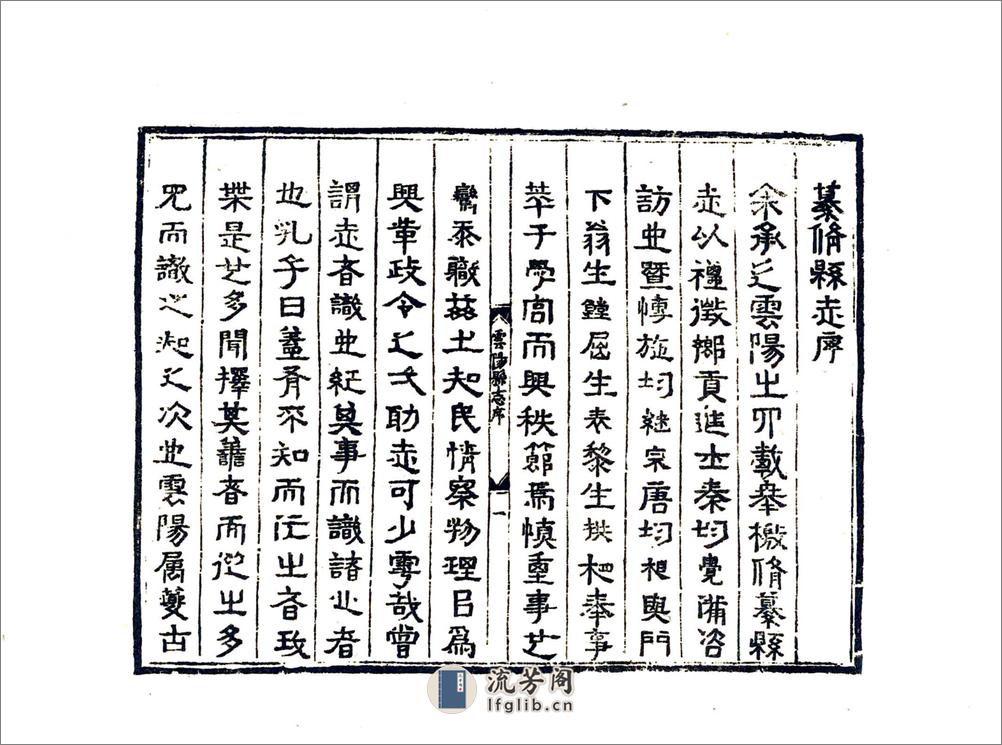 纂脩縣志序
余承乏雲陽之四載奉檄脩纂縣
志以禮徵鄉貢進士秦均覺備咨
訪也暨愽施均継宗唐均昶與門
下翁生鐘屈生表黎生拱杷奉事
萃于學宮而興秩節焉慎重事也
雲陽縣志序
一
鸞忝職茲土知民情察物理㠯為
興革政令之一助志可少雩哉嘗
謂志者識也紀其事而識諸心者
也孔子曰蓋有不知而作之者我
無是也多聞擇其善者而從之多
見而識之知之次也雲陽属夔古
流芳阁
lfglib.cn